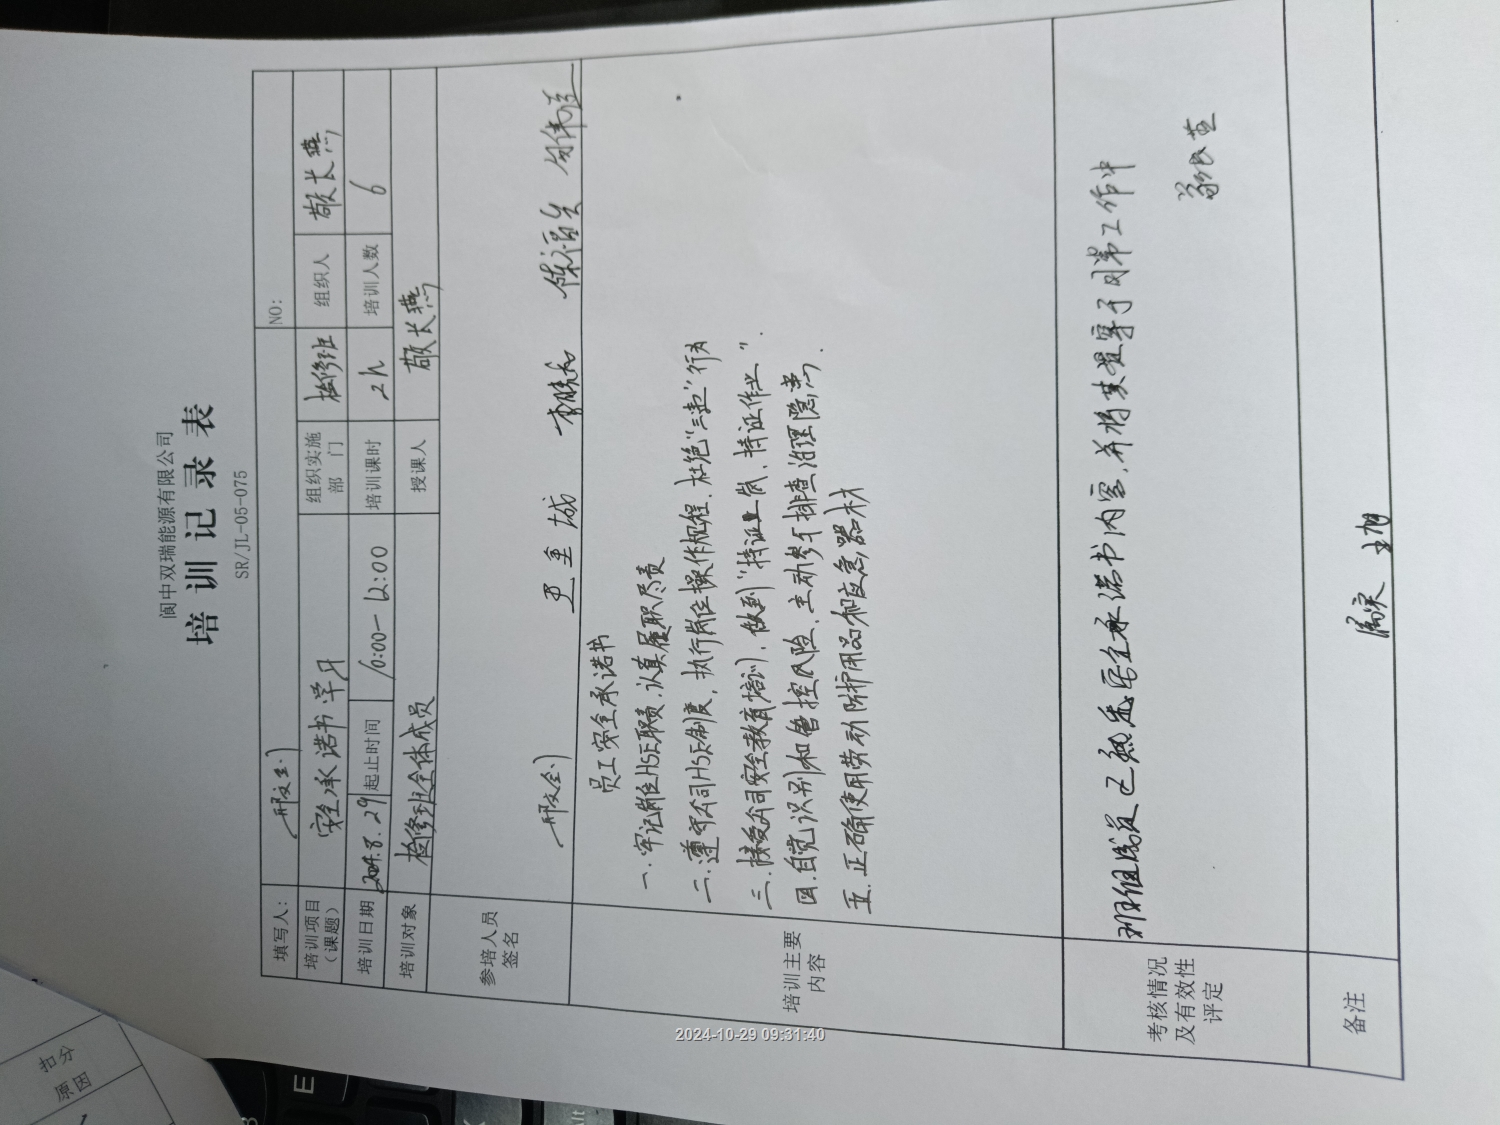 阆中双瑞能源有限公司
培训记录表
SR/JL-05-075
填写人： 邢文全 NO:
培训项目（课题） 安全承诺书学习 组织实施部门 检修班 组织人 敬长燕
培训日期 2024.8.29 起止时间 10:00—12:00 培训课时 2h 培训人数 6
培训对象 检修班全体成员 授课人 敬长燕
参培人员签名 邢文全
培训主要内容
员工安全承诺书
一.牢记岗位HSE职责,认真履职尽责
二.遵守公司HSE制度,执行岗位操作规程,杜绝"三违"行为
三.接受公司安全教育培训,做到"持证上岗,持证作业".
四.自觉识别和管控风险,主动参与排查治理隐患.
五.正确使用劳动防护用品和应急器材
考核情况及有效性评定
班组成员已熟悉安全承诺书内容,并将其贯穿于日常工作中
备注
扣分
原因
2024-10-29 09:31:40
E
Alt